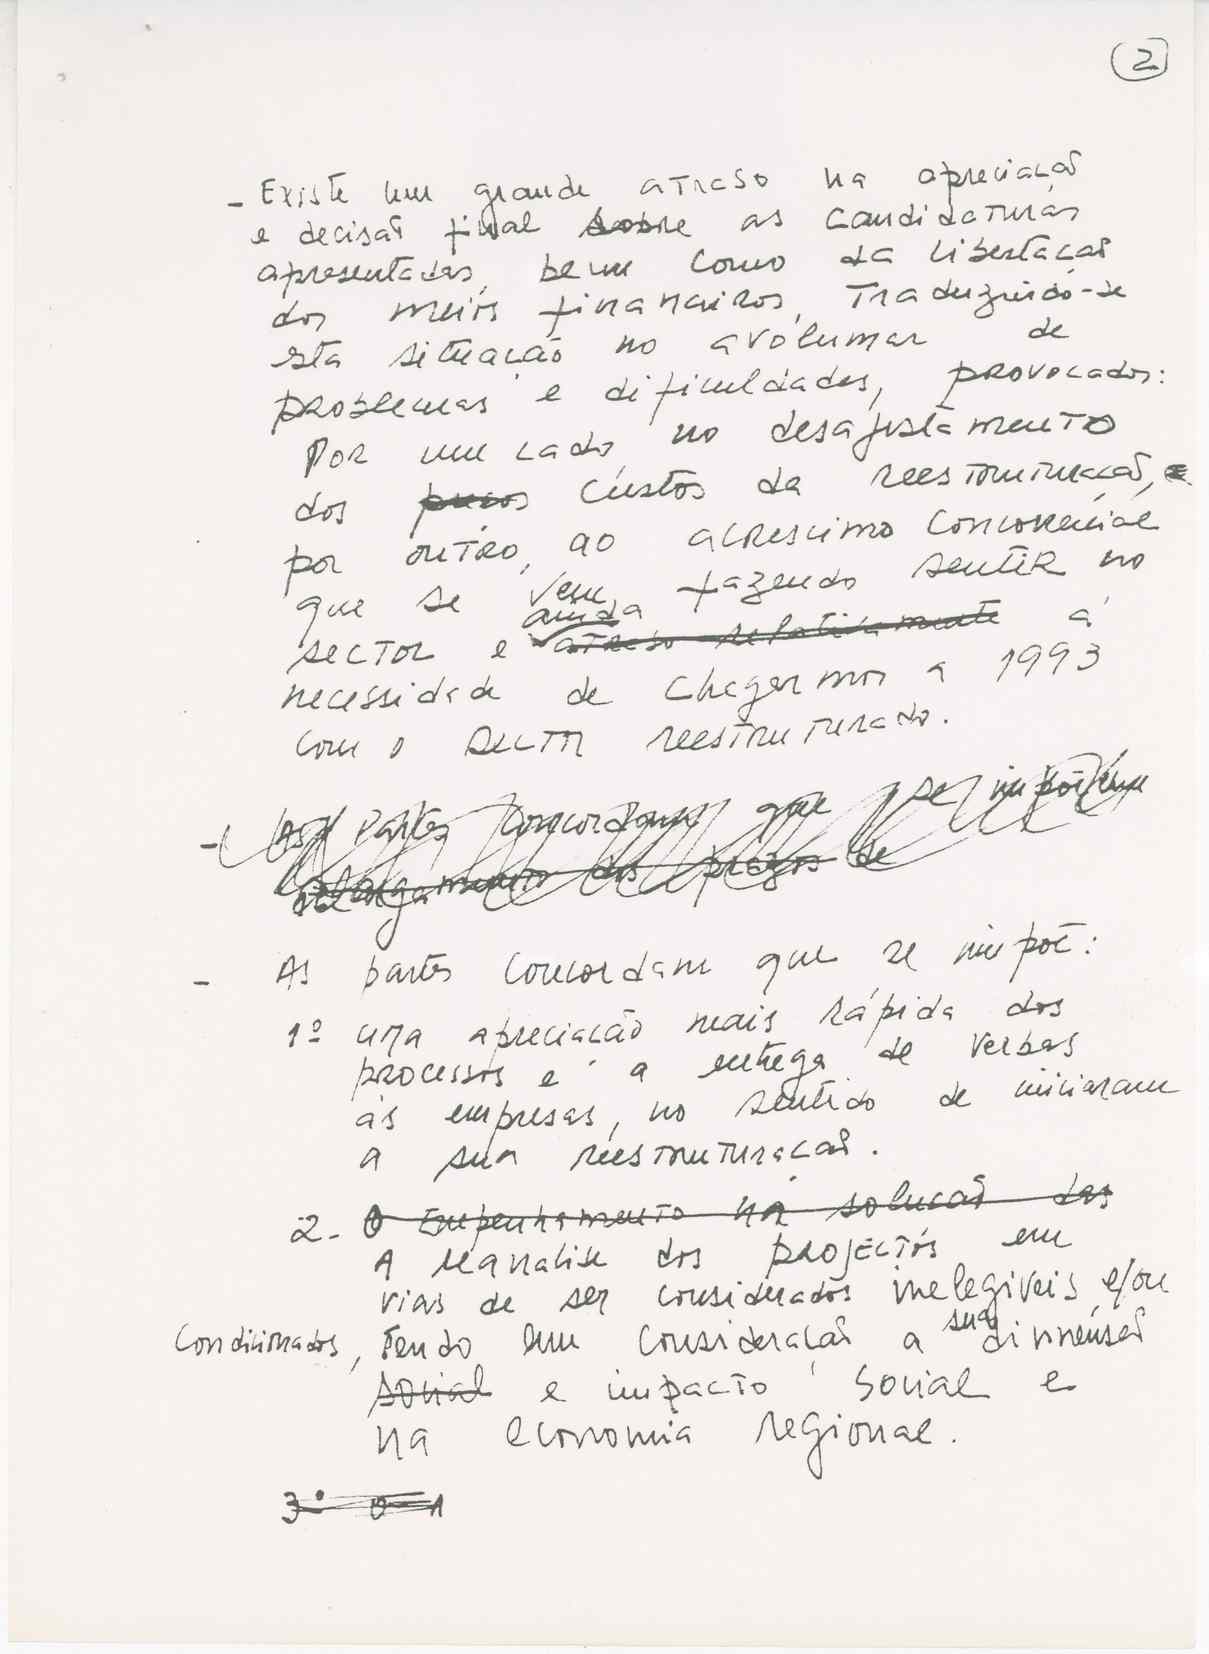 2
- Existe um grande atraso na apreciação
e decisão final sobre as candidaturas
apresentadas, bem como da libertação
dos meios financeiros, traduzindo-se
esta situação no avolumar de
problemas e dificuldades, provocados:
Por um lado, no desajustamento
dos custos da reestruturação, e
por outro, ao acrescimo concorrencial
que se vem fazendo sentir no
sector e ainda atraso relativamente à
necessidade de chegarmos a 1993
com o sector reestruturado.
- As partes concordam que se impõe um
alargamento dos prazos de
- As partes concordam que se impõe:
1º uma apreciação mais rápida dos
processos e a entrega de verbas
às empresas, no sentido de iniciaram
a sua reestruturação.
2- O Empenhamento na solução das
A reanalise dos projectos em
vias de ser considerados inelegiveis e/ou
condicionados, tendo em consideração a sua dimensão
social e impacto social e
na economia regional.
3º